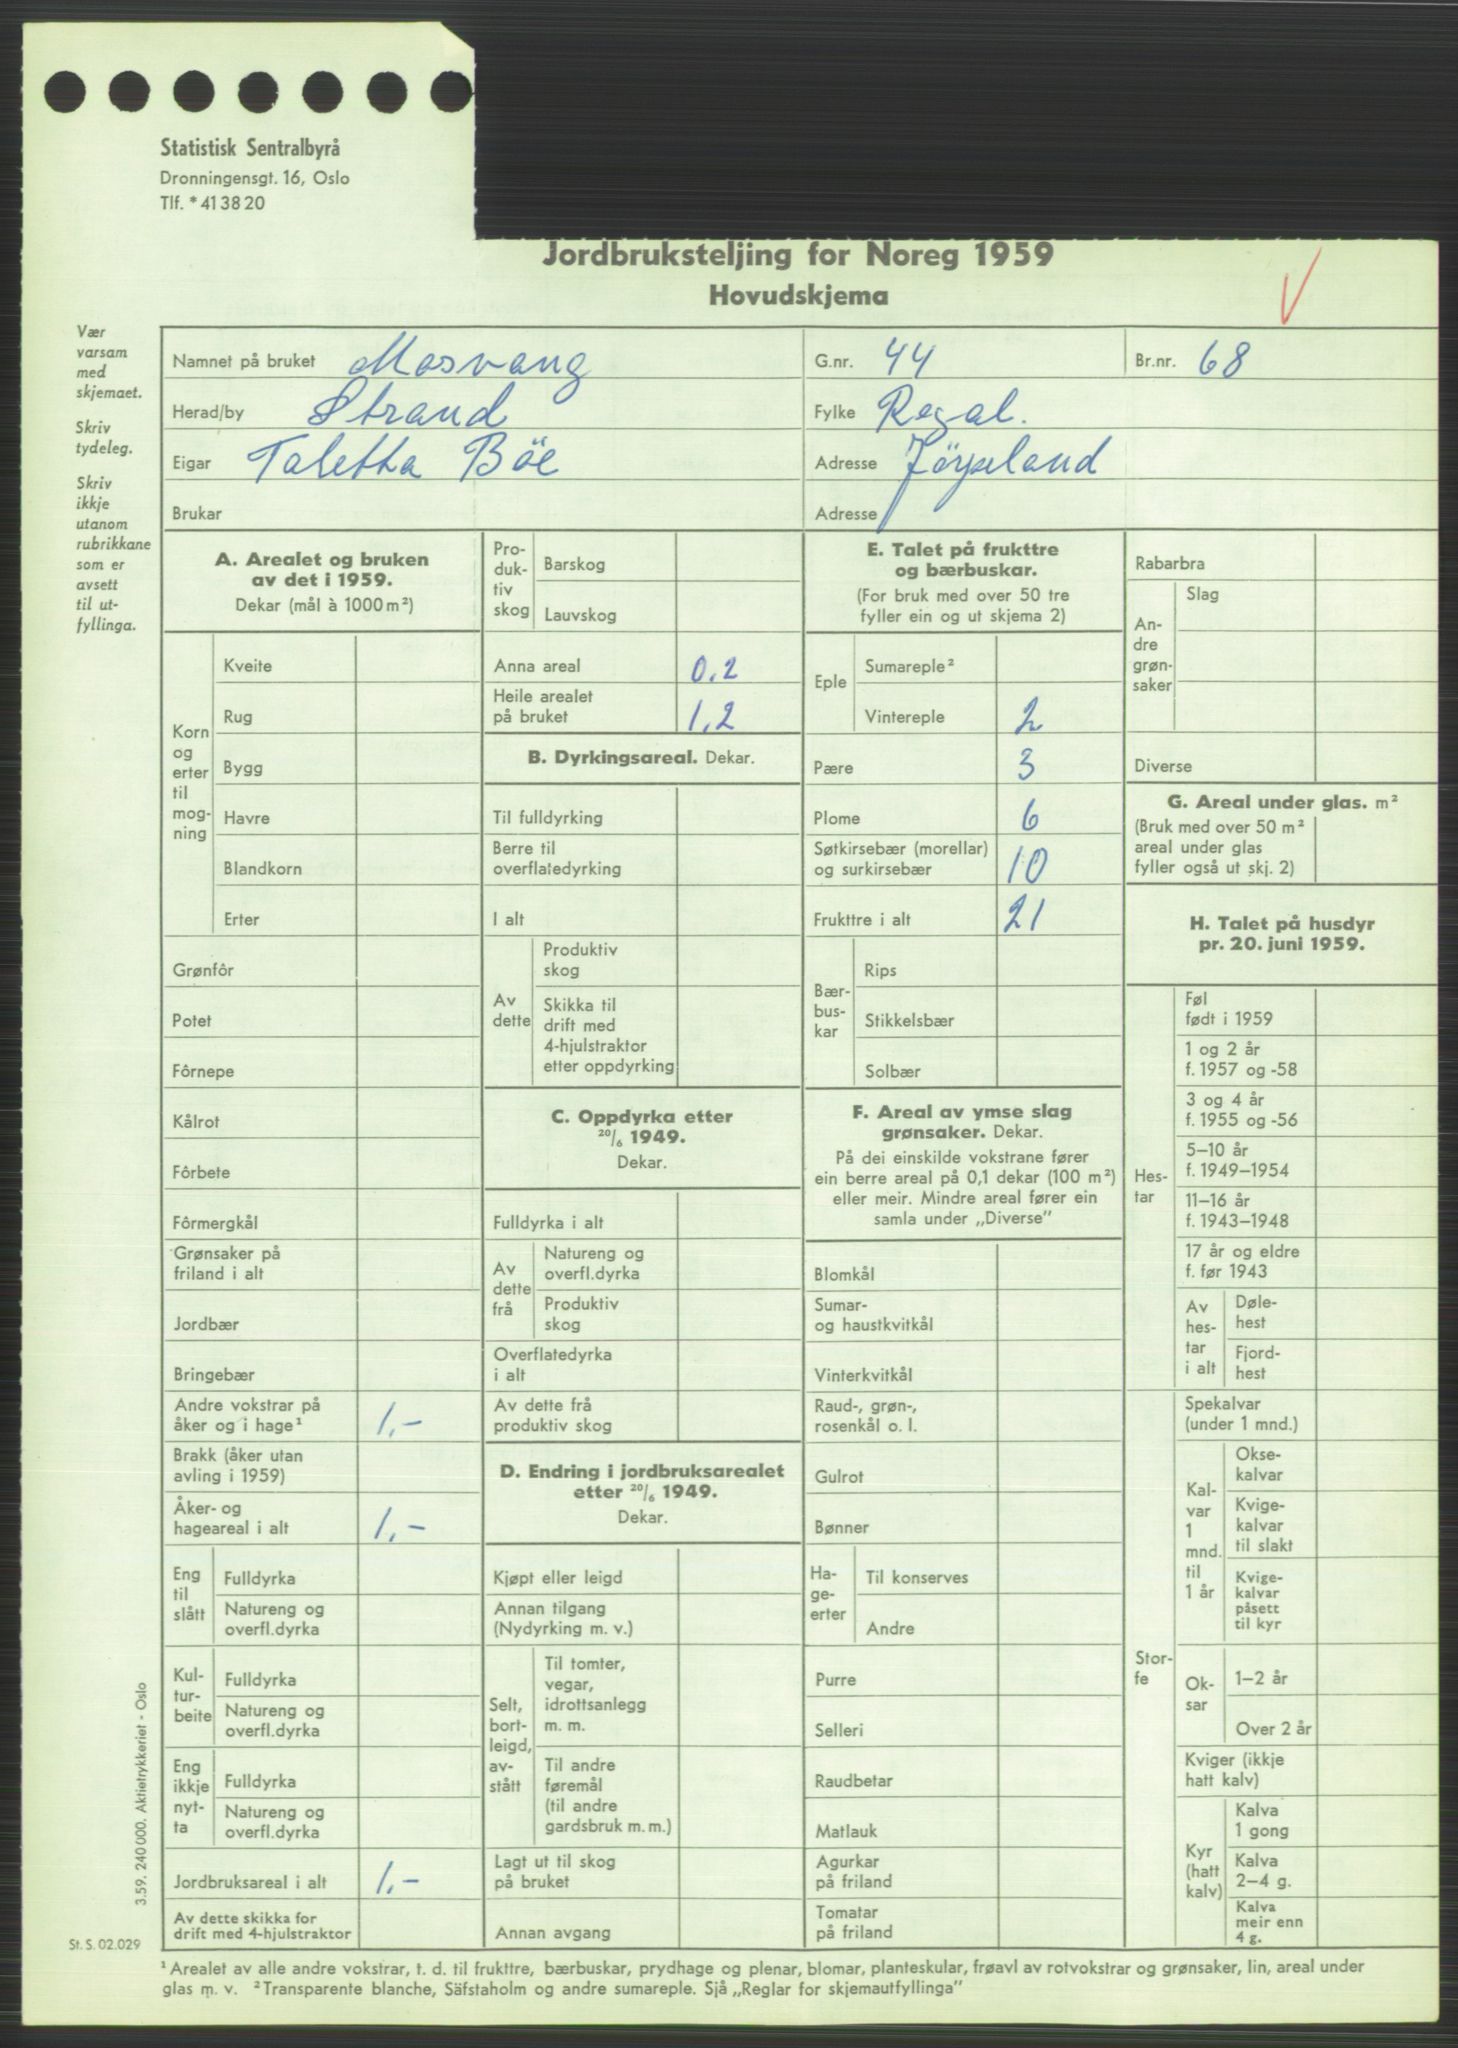 Statistisk Sentralbyrå
Dronningensgt. 16, Oslo
Tlf. * 41 38 20
Jordbruksteljing for Noreg 1959
Hovudskjema
Vær
varsam
med
skjemaet.
Skriv
tydeleg.
Skriv
ikkje
utanom
rubrikkane
som er
avsett
til ut-
fyllinga.
Namnet på bruket Mosvang G.nr. 44 Br.nr. 68
Herad/by Strand Fylke Rogal.
Eigar Taletta Böe Adresse Jörpeland
Brukar Adresse
A. Arealet og bruken
av det i 1959.
Dekar (mål à 1000 m²)
Korn
og
erter
til
mog-
ning
Kveite
Rug
Bygg
Havre
Blandkorn
Erter
Grønfôr
Potet
Fôrnepe
Kålrot
Fôrbete
Fôrmergkål
Grønsaker på
friland i alt
Jordbær
Bringebær
Andre vokstrar på
åker og i hage¹ 1,-
Brakk (åker utan
avling i 1959)
Åker- og
hageareal i alt 1,-
Eng
til
slått
Fulldyrka
Natureng og
overfl.dyrka
Kul-
tur-
beite
Fulldyrka
Natureng og
overfl.dyrka
Eng
ikkje
nyt-
ta
Fulldyrka
Natureng og
overfl.dyrka
Jordbruksareal i alt 1,-
Av dette skikka for
drift med 4-hjulstraktor
Pro-
duk-
tiv
skog
Barskog
Lauvskog
Anna areal 0,2
Heile arealet
på bruket 1,2
B. Dyrkingsareal. Dekar.
Til fulldyrking
Berre til
overflatedyrking
I alt
Av
dette
Produktiv
skog
Skikka til
drift med
4-hjulstraktor
etter oppdyrking
C. Oppdyrka etter
20/6 1949.
Dekar.
Fulldyrka i alt
Av
dette
frå
Natureng og
overfl.dyrka
Produktiv
skog
Overflatedyrka
i alt
Av dette frå
produktiv skog
D. Endring i jordbruksarealet
etter 20/6 1949.
Dekar.
Kjøpt eller leigd
Annan tilgang
(Nydyrking m. v.)
Selt,
bort-
leigd,
av-
stått
Til tomter,
vegar,
idrottsanlegg
m. m.
Til andre
føremål
(til andre
gardsbruk m. m.)
Lagt ut til skog
på bruket
Annan avgang
E. Talet på frukttre
og bærbuskar.
(For bruk med over 50 tre
fyller ein og ut skjema 2)
Eple
Sumareple²
Vintereple 2
Pære 3
Plome 6
Søtkirsebær (morellar)
og surkirsebær 10
Frukttre i alt 21
Bær-
bus-
kar
Rips
Stikkelsbær
Solbær
F. Areal av ymse slag
grønsaker. Dekar.
På dei einskilde vokstrane fører
ein berre areal på 0,1 dekar (100 m²)
eller meir. Mindre areal fører ein
samla under „Diverse”
Blomkål
Sumar-
og haustkvitkål
Vinterkvitkål
Raud-, grøn-,
rosenkål o. l.
Gulrot
Bønner
Ha-
ge-
erter
Til konserves
Andre
Purre
Selleri
Raudbetar
Matlauk
Agurkar
på friland
Tomatar
på friland
Rabarbra
An-
dre
grøn-
saker
Slag
Diverse
G. Areal under glas. m²
(Bruk med over 50 m²
areal under glas
fyller også ut skj. 2)
H. Talet på husdyr
pr. 20. juni 1959.
Hes-
tar
Føl
født i 1959
1 og 2 år
f. 1957 og -58
3 og 4 år
f. 1955 og -56
5–10 år
f. 1949–1954
11–16 år
f. 1943–1948
17 år og eldre
f. før 1943
Av
hes-
tar
i alt
Døle-
hest
Fjord-
hest
Stor-
fe
Spekalvar
(under 1 mnd.)
Kal-
var
1
mnd.
til
1 år
Okse-
kalvar
Kvige-
kalvar
til slakt
Kvige-
kalvar
påsett
til kyr
Ok-
sar
1–2 år
Over 2 år
Kviger (ikkje
hatt kalv)
Kyr
(hatt
kalv)
Kalva
1 gong
Kalva
2–4 g.
Kalva
meir enn
4 g.
3.59. 240 000. Aktietrykkeriet - Oslo
St. S. 02.029
¹ Arealet av alle andre vokstrar, t. d. til frukttre, bærbuskar, prydhage og plenar, blomar, planteskular, frøavl av rotvokstrar og grønsaker, lin, areal under
glas m. v. ² Transparente blanche, Säfstaholm og andre sumareple. Sjå „Reglar for skjemautfyllinga”